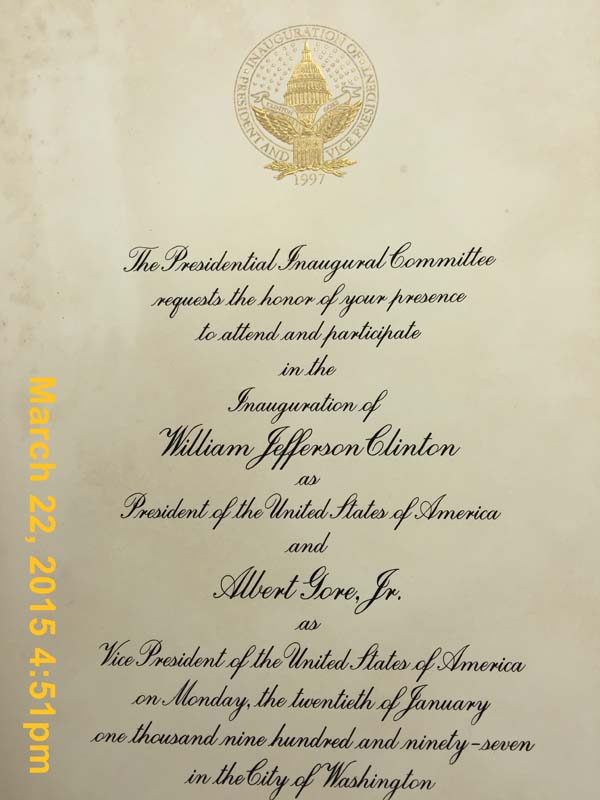 INAUGURATION OF
PRESIDENT AND VICE PRESIDENT
1997
The Presidential Inaugural Committee
requests the honor of your presence
to attend and participate
in the
Inauguration of
William Jefferson Clinton
as
President of the United States of America
and
Albert Gore, Jr.
as
Vice President of the United States of America
on Monday, the twentieth of January
one thousand nine hundred and ninety-seven
in the City of Washington
March 22, 2015 4:51pm